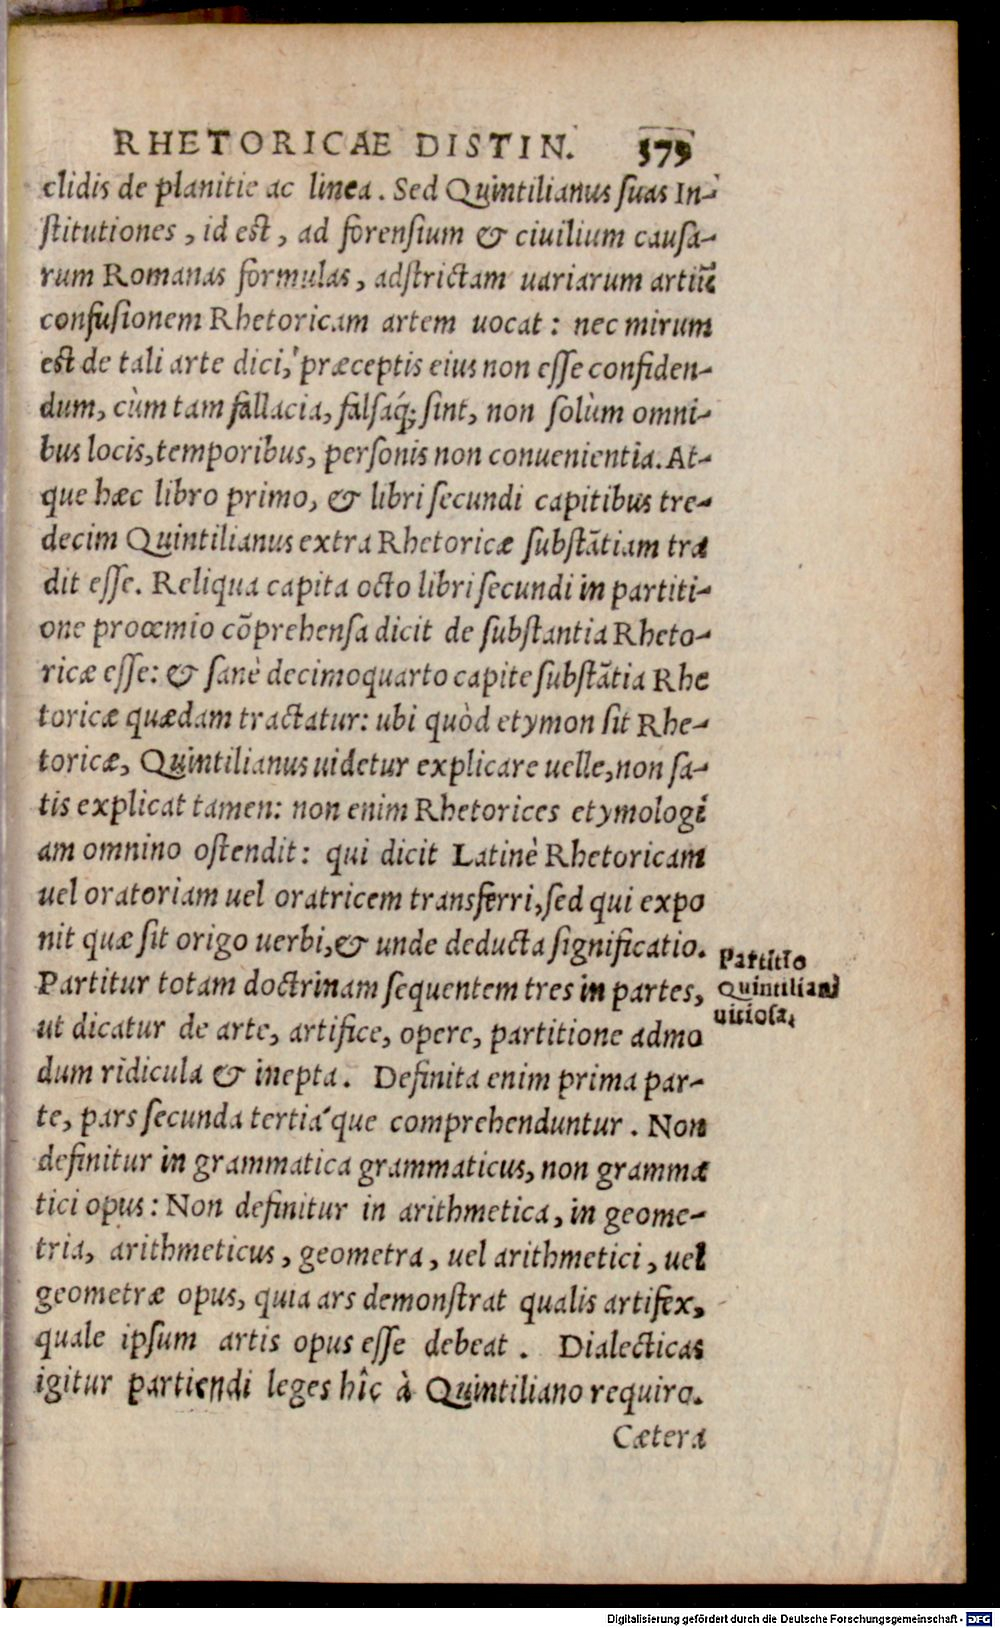 RHETORICAE DISTIN. 375
clidis de planitie ac linea. Sed Quintilianus suas In-
stitutiones, id est, ad forensium & ciuilium causa-
rum Romanas formulas, adstrictam uariarum artiũ
confusionem Rhetoricam artem uocat: nec mirum
est de tali arte dici, præceptis eius non esse confiden-
dum, cùm tam fallacia, falsaq́; sint, non solùm omni-
bus locis, temporibus, personis non conuenientia. At-
que hæc libro primo, & libri secundi capitibus tre-
decim Quintilianus extra Rhetoricæ substãtiam tra
dit esse. Reliqua capita octo libri secundi in partiti-
one proœmio cõprehensa dicit de substantia Rheto-
ricæ esse: & sanè decimoquarto capite substãtia Rhe
toricæ quædam tractatur: ubi quòd etymon sit Rhe-
toricæ, Quintilianus uidetur explicare uelle, non sa-
tis explicat tamen: non enim Rhetorices etymologi
am omnino ostendit: qui dicit Latinè Rhetoricam
uel oratoriam uel oratricem transferri, sed qui expo
nit quæ sit origo uerbi, & unde deducta significatio.
Partitur totam doctrinam sequentem tres in partes,
ut dicatur de arte, artifice, opere, partitione admo
dum ridicula & inepta. Definita enim prima par-
te, pars secunda tertiáque comprehenduntur. Non
definitur in grammatica grammaticus, non gramma
tici opus: Non definitur in arithmetica, in geome-
tria, arithmeticus, geometra, uel arithmetici, uel
geometræ opus, quia ars demonstrat qualis artifex,
quale ipsum artis opus esse debeat. Dialecticas
igitur partiendi leges hîc à Quintiliano requiro.
Cætera
Partitio
Quintiliani
uitiosa.
Digitalisierung gefördert durch die Deutsche Forschungsgemeinschaft - DFG